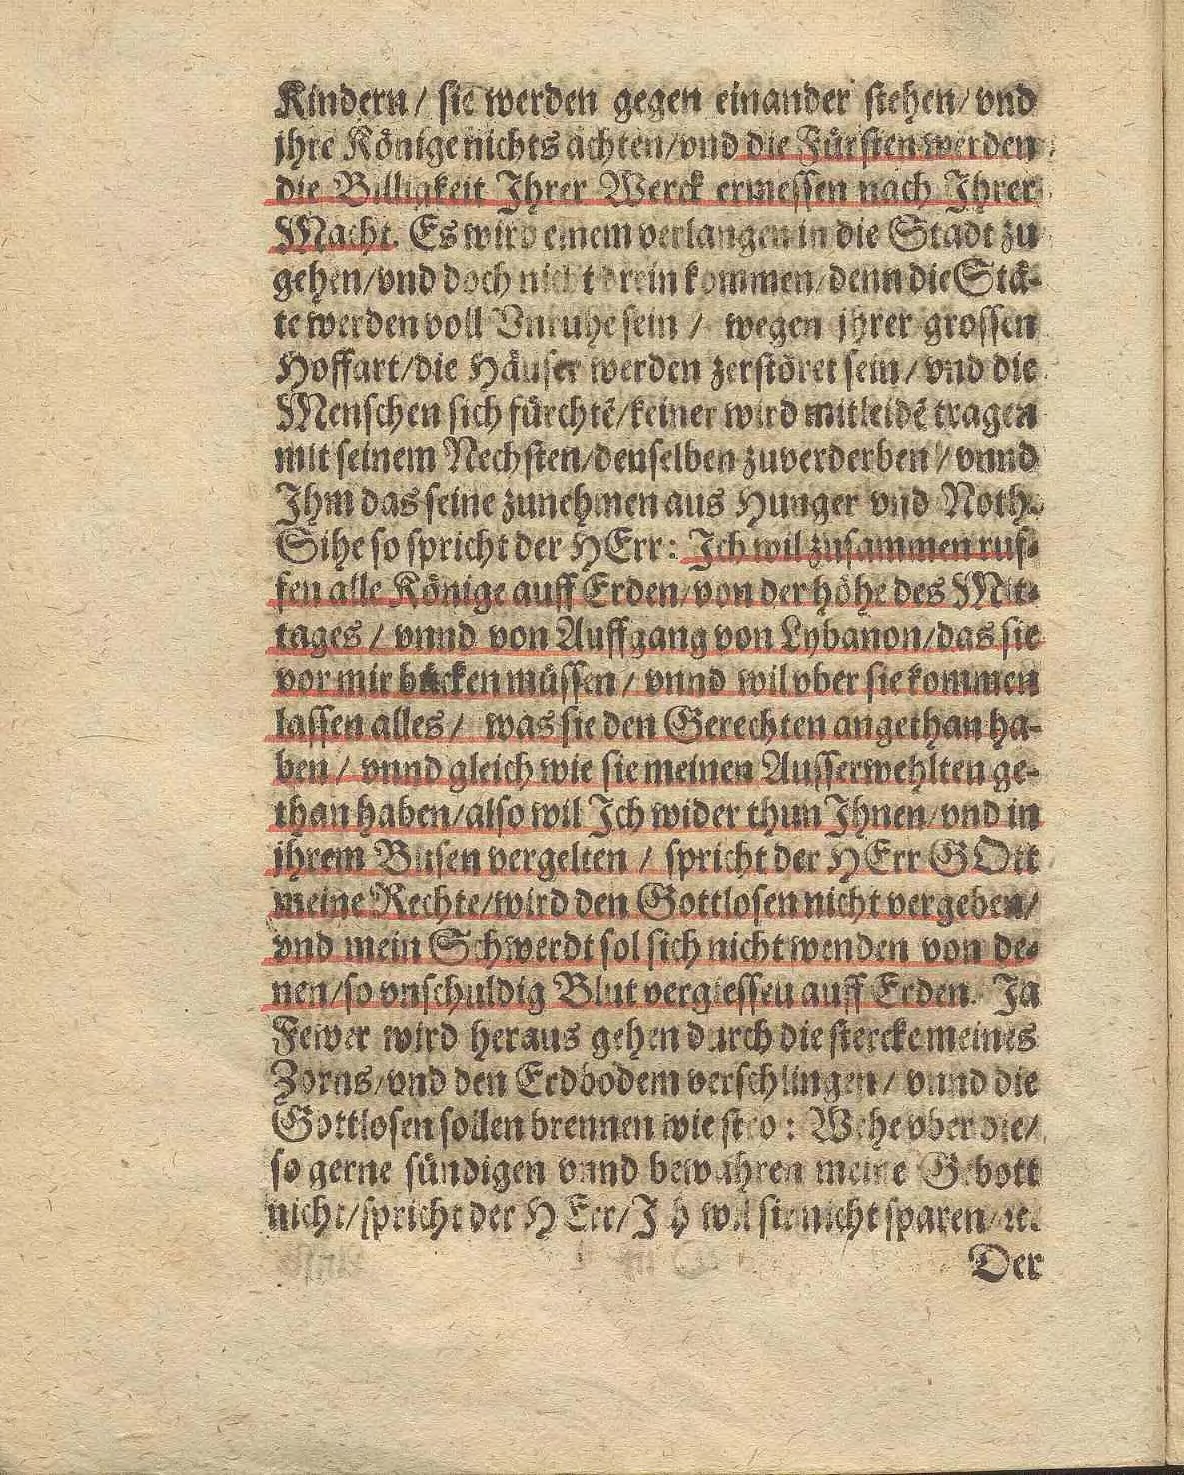 Kindern / sie werden gegen einander stehen / vnd
jhre Könige nichts achten / vnd die Fürsten werden
die Billigkeit Ihrer Werck ermessen nach Ihrer
Macht. Es wird einem verlangen in die Stadt zu
gehen / vnd doch nicht drein kommen / denn die Stä-
te werden voll Vnruhe sein / wegen jhrer grossen
Hoffart / die Häuser werden zerstöret sein / vnd die
Menschen sich fürchtē / keiner wird mitleidē tragen
mit seinem Nechsten / denselben zuverderben / vnnd
Ihm das seine zunehmen aus Hunger vnd Noth.
Sihe so spricht der HErr: Ich wil zusammen ruf-
fen alle Könige auff Erden / von der höhe des Mit-
tages / vnnd von Auffgang von Lybanon / das sie
vor mir bücken müssen / vnnd wil vber sie kommen
lassen alles / was sie den Gerechten angethan ha-
ben / vnnd gleich wie sie meinen Ausserwehlten ge-
than haben / also wil Ich wider thun Ihnen / vnd in
jhrem Busen vergelten / spricht der HErr GOtt
meine Rechte / wird den Gottlosen nicht vergeben /
vnd mein Schwerdt sol sich nicht wenden von de-
nen / so vnschuldig Blut vergiessen auff Erden. Ja
Fewer wird heraus gehen durch die stercke meines
Zorns / vnd den Erdbodem verschlingen / vnnd die
Gottlosen sollen brennen wie stro: Wehe vber die /
so gerne sündigen vnnd bewahren meine Gebott
nicht / spricht der HErr / Ich wil sie nicht sparen / ꝛc.
Der